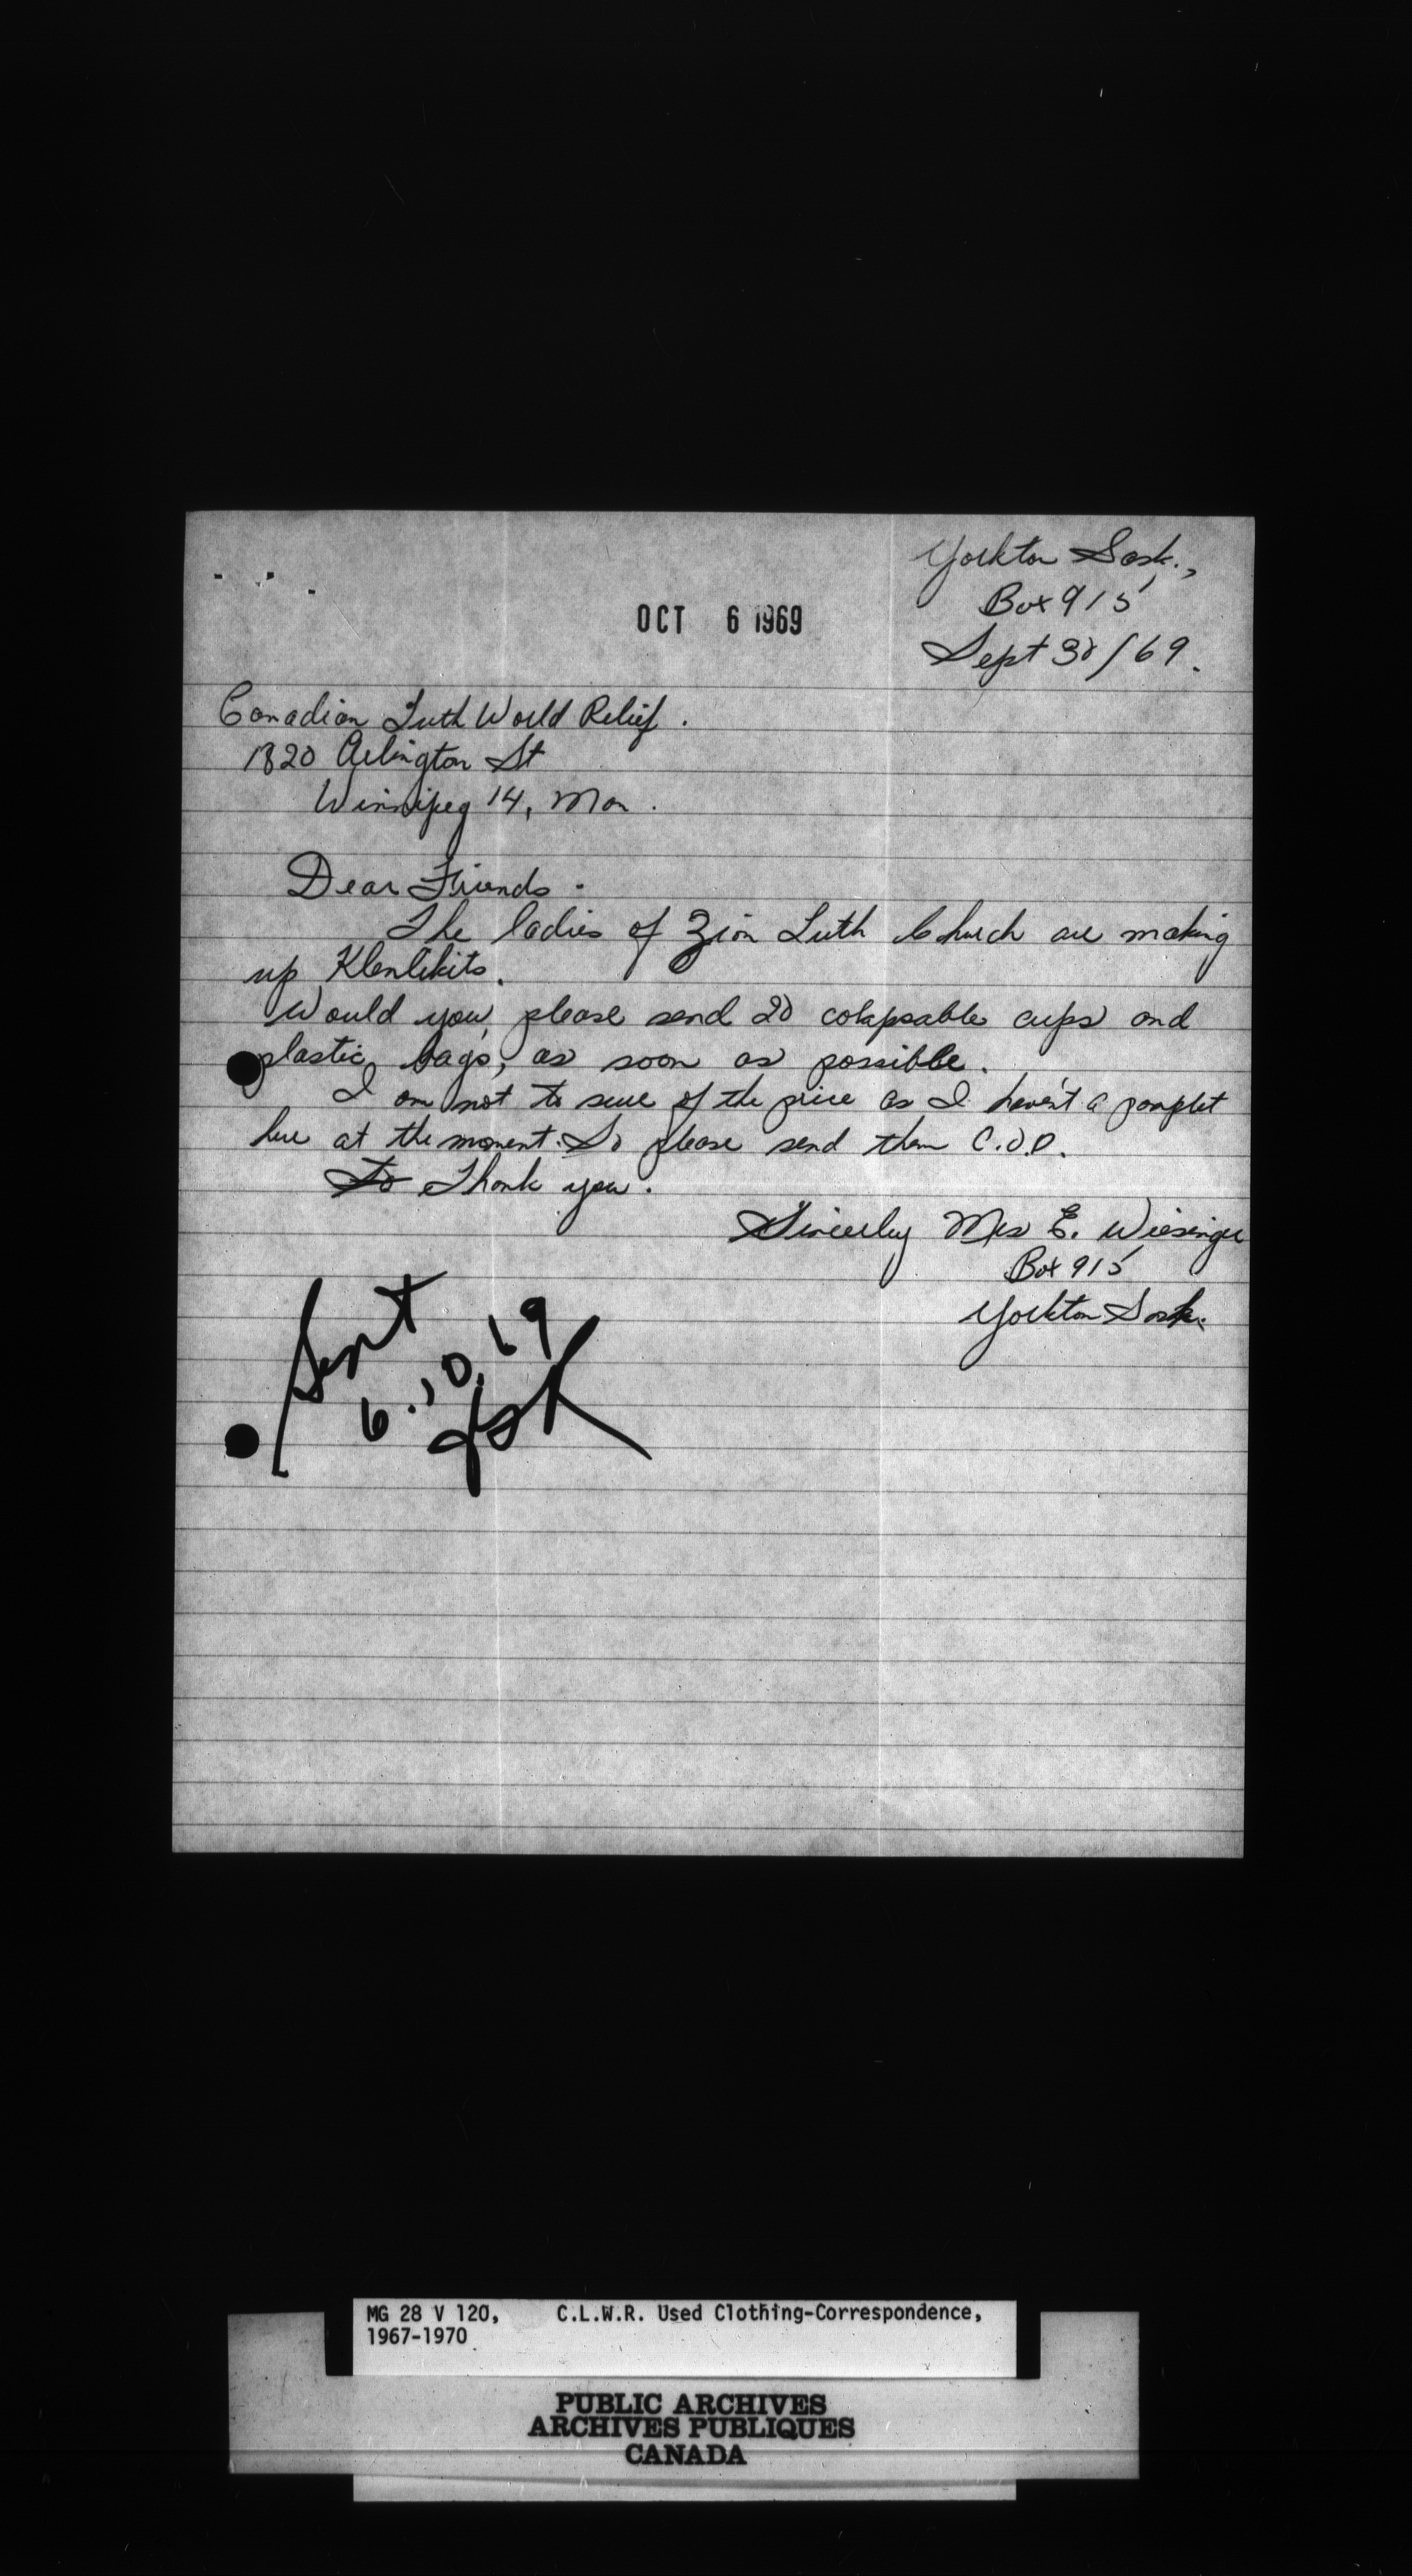 Yorkton Sask.,
Box 915
OCT 6 1969
Sept 30/69.
Canadian Luth World Relief.
1820 Arlington St
Winnipeg 14, Man.
Dear Friends.
The ladies of Zion Luth Church are making
up Klenlikits.
Would you, please send 20 colapsable cups and
plastic bags, as soon as possible.
I am not to sure of the price as I haven't a pamplet
here at the moment. So please send them C.O.D.
To Thank you.
Sincerley Mrs E. Wiesinger
Box 915
Yorkton Sask.
Sent
6.10.69
MG 28 V 120, C.L.W.R. Used Clothing-Correspondence,
1967-1970
PUBLIC ARCHIVES
ARCHIVES PUBLIQUES
CANADA